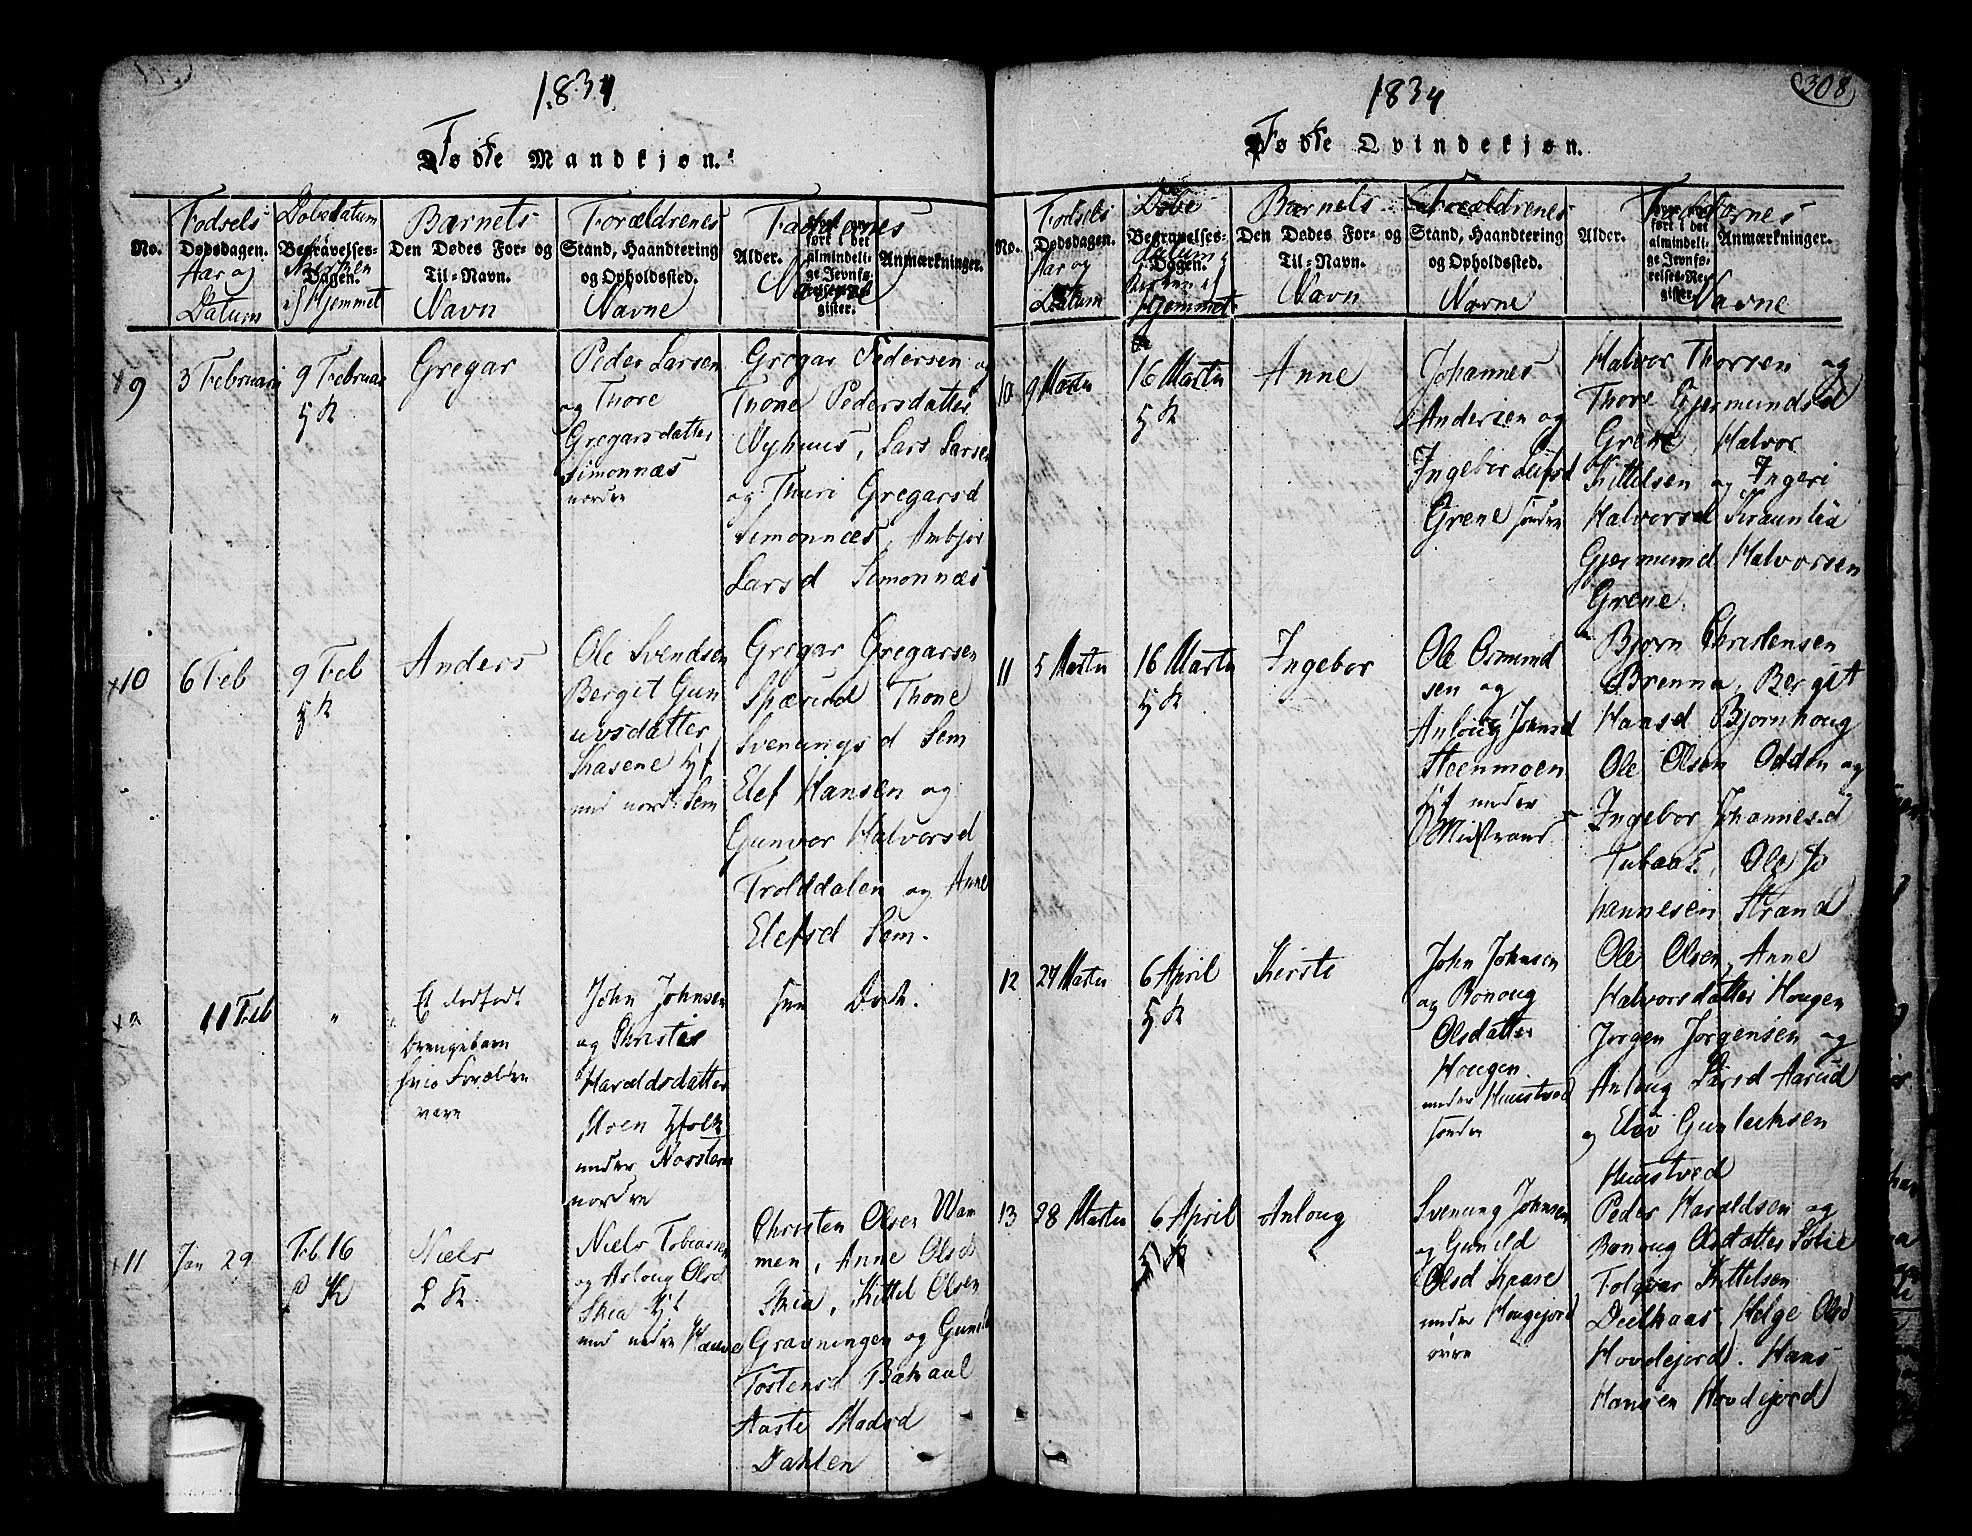 1834
Fødte Mandkjøn.
No.
Fødsels
Dødsdagen.
Aar og
Datum
Dobsdatum
Begravelses-
Dagen.
Kirken
i Hjemmet
Barnets
Den Dødes For- og
Til-Navn.
Navn
Forældrenes
Stand, Haandtering
og Opholdssted.
Navne
Faddernes
Alder.
ført i det
almindeli-
ge Jevnfø-
relses-Re-
gister.
Anmærkninger.
Navne
9
3 Februari
9 Februar
5 K
Gregar
Peder Larsen
og Thore
Gregarsdatter
Simonnæs
nordre
Gregar Pedersen og
Thone Pedersdatter
Nyhuus, Lars Larsen
og Thuri Gregarsd
Simonnæs, Anbjor
Larsd Simonnæs
x10
6 Feb
9 Feb
5 K
Anders
Ole Svendsen
Bergit Gun
uvsdatter
Kasene Hf
Sem
Gregar Gregarsen
Spærud Thone
Svenungsd Sem
Elef Hansen og
Gunvor Halvorsd
Trolddalen og Anne
Elefsd Sem.
11 Feb
"
Et dødfødt
Drengebarn
hvis Forældre
vare
John Johnsen
og Christie
Haraldsdatter
Moen
under
nordre
x11
Jan 29
Feb. 16
L K
Niels
L K.
Niels Tobiasen
og Aslaug Olsd
Skia
Christen Olsen Wam
men, Anne Olsd
Skia, Kittel Olsen
Gravningen og Gunild
Tostensd Bakaal
Aaste Madsd
Dahlen
1834
308
Fødte Qvindekjøn.
No.
Fodsels
Dødsdagen.
Aar og
Datum
Dobe
Begravelses-
datum
Dagen.
Kirken i
Hjemmet
Barnets
Den Dødes For- og
Til-Navn.
Navn
Forældrenes
Stand, Haandtering
og Opholdssted.
Navne
Faddernes
Alder.
ført i det
almindeli-
ge Jevnfø-
relses-Re-
gister.
Anmærkninger.
Navne
10
9 Martii
16 Martii
5 K
Anne
Johannes
Andersen og
Ingebor Leifsd
Grene søndre
Halvor Thorsen og
Thore Gjermundsd
Grene, Halvor
Kittelsen og Ingeri
Halvorsd Skraunlia
Gjermund Halvorsen
Grene.
11
5 Martii
16 Martii
5 K
Ingebor
Ole Osmund
sen og
Anloug Johnsd
Steenmoen
under
Midstrand
Bjorn Christensen
Brenna, Bergit
Hansd Bjornhoug
Ole Olsen Odden og
Ingebor Johannesd
Tubaas, Ole Jo
hannesen Strand
12
27 Martii
6 April
5 K
Kirsti
John Johnsen
og Bonoug
Olsdatter
Hougen
under Huustved
søndre
Ole Olsen, Anne
Halvorsdatter Hougen
Jorgen Jorgensen og
Anloug Aasrud
og Elev Gunleiksen
Huustved
13
28 Martii
6 April
5 K
Anloug
Svenung Johnsen
og Gunild
Olsd Kaase
under Hougejord
øvre
Peder Haraldsen og
Bonoug Olsdatter Solie
Tolgvar Kittelsen
Deelkaas Helge Olsd
Hovdejord. Hans
Hansen Hovdejord